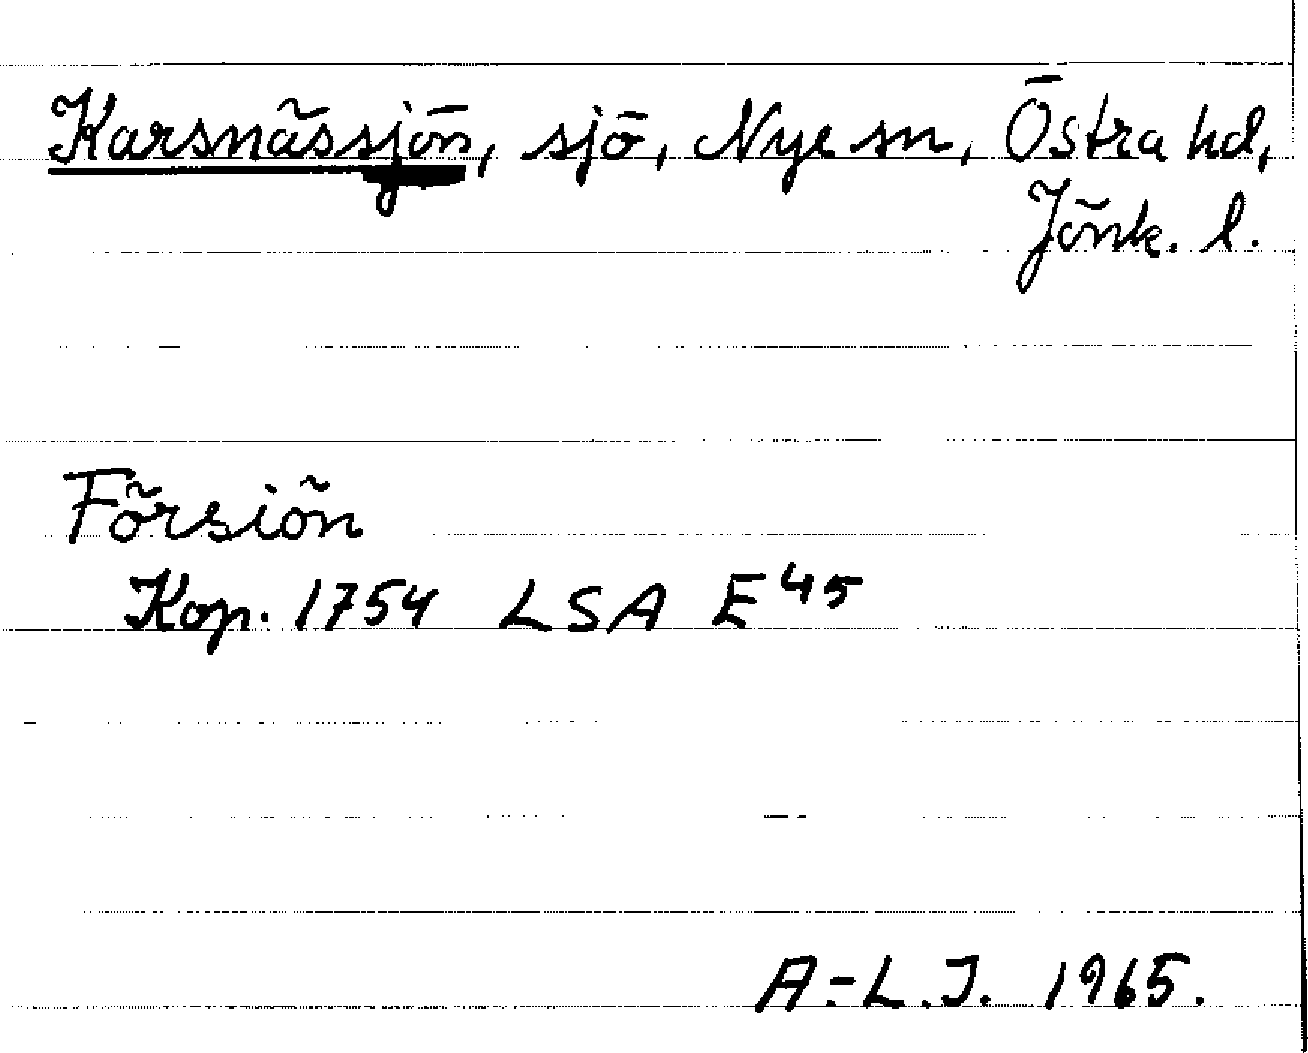 Karsnässjön, sjö, Nye sn, Östra hd,
Jönk. l.
Försiön
Kop. 1754 LSA E 45
A-L.J. 1965.